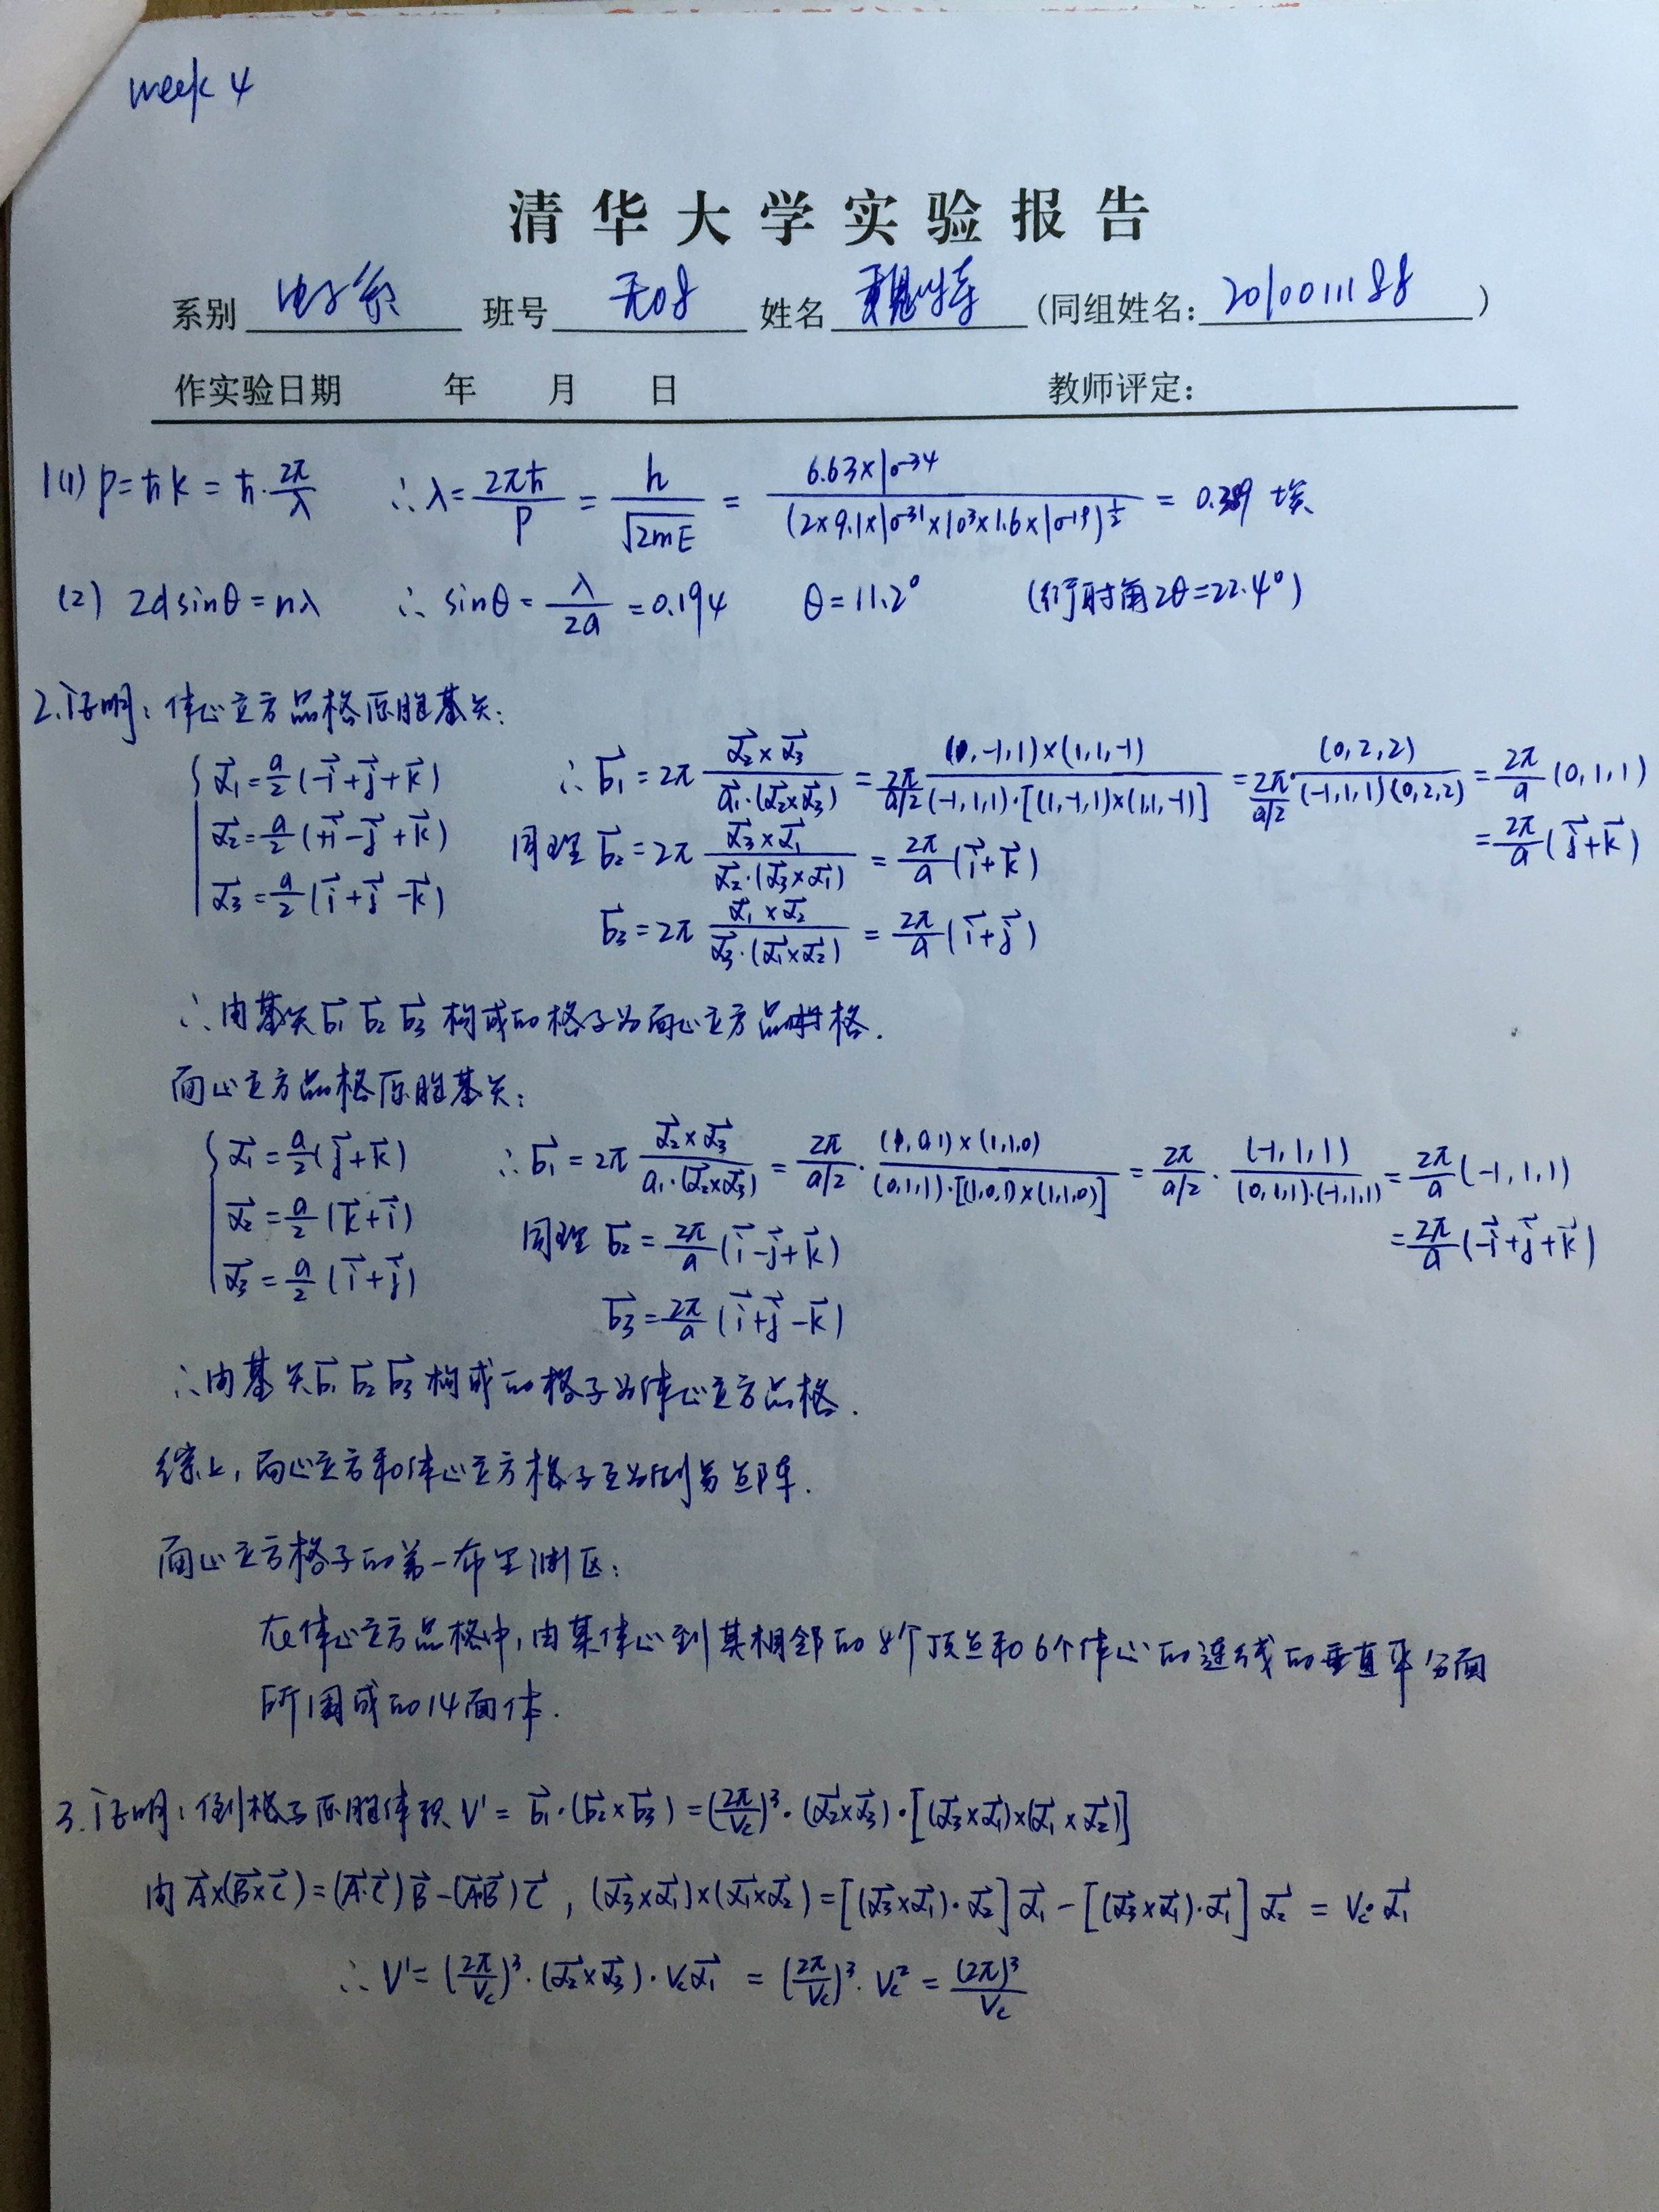 week 4
清华大学实验报告
系别 电子系 班号 无08 姓名 (同组姓名: 2010011188 )
作实验日期 年 月 日 教师评定:
1(1) p=ħk=ħ·2π/λ ∴λ=2πħ/p=h/√(2mE)=6.63×10^-34/(2×9.1×10^-31×10^3×1.6×10^-19)^(1/2)=0.389 埃
(2) 2dsinθ=nλ ∴sinθ=λ/2a=0.194 θ=11.2° (衍射角2θ=22.4°)
2.证明: 体心立方晶格原胞基矢:
{ α1=a/2(-i+j+k) ∴b1=2π (α2×α3)/(a1·(α2×α3))=2π/(a/2) (1,-1,1)×(1,1,-1)/((-1,1,1)·[(1,-1,1)×(1,1,-1)])=2π/(a/2) (0,2,2)/((-1,1,1)(0,2,2))=2π/a(0,1,1)
=2π/a(j+k)
α2=a/2(+i-j+k) 同理 b2=2π (α3×α1)/(α2·(α3×α1))=2π/a(i+k)
α3=a/2(i+j-k) b3=2π (α1×α2)/(α3·(α1×α2))=2π/a(i+j)
∴由基矢b1 b2 b3构成的格子为面心立方晶格.
面心立方晶格原胞基矢:
{ α1=a/2(j+k) ∴b1=2π (α2×α3)/(a1·(α2×α3))=2π/(a/2)·(1,0,1)×(1,1,0)/((0,1,1)·[(1,0,1)×(1,1,0)])=2π/(a/2)·(-1,1,1)/((0,1,1)·(-1,1,1))=2π/a(-1,1,1)
=2π/a(-i+j+k)
α2=a/2(k+i) 同理 b2=2π/a(i-j+k)
α3=a/2(i+j) b3=2π/a(i+j-k)
∴由基矢b1 b2 b3构成的格子为体心立方晶格.
综上,面心立方和体心立方格子互为倒易点阵.
面心立方格子的第一布里渊区:
在体心立方晶格中,由某体心到其相邻的8个顶点和6个体心的连线的垂直平分面
所围成的14面体.
3.证明: 倒格子原胞体积 V'=b1·(b2×b3)=(2π/Vc)^3·(α2×α3)·[(α3×α1)×(α1×α2)]
由A×(B×C)=(A·C)B-(A·B)C, (α3×α1)×(α1×α2)=[(α3×α1)·α2]α1-[(α3×α1)·α1]α2=Vc·α1
∴V'=(2π/Vc)^3·(α2×α3)·Vcα1=(2π/Vc)^3·Vc^2=(2π)^3/Vc